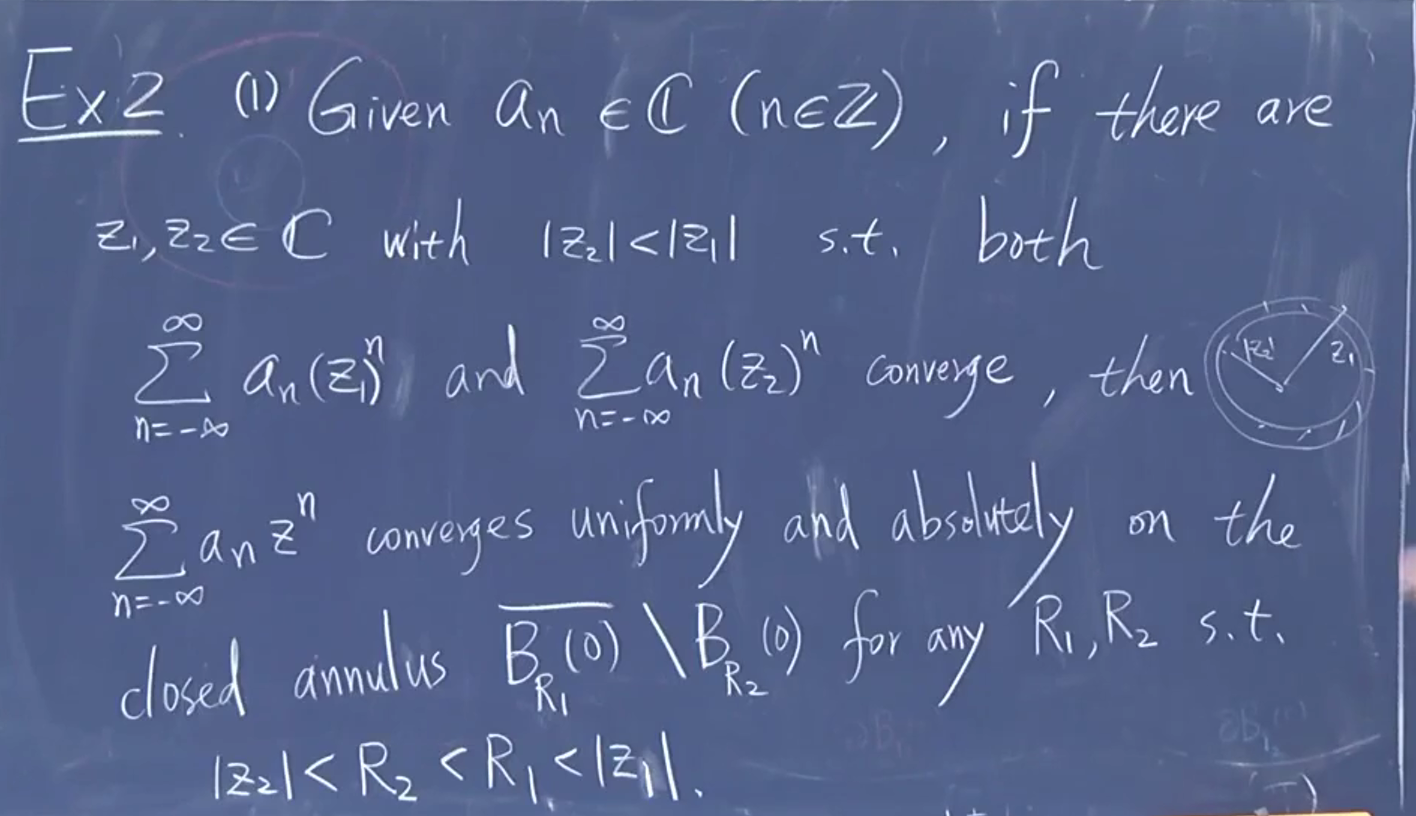 Ex 2. (1) Given aₙ ∈ ℂ (n∈ℤ), if there are
z₁, z₂ ∈ ℂ with |z₂| < |z₁| s.t. both
∑_{n=-∞}^{∞} aₙ(z₁)ⁿ and ∑_{n=-∞}^{∞} aₙ(z₂)ⁿ converge, then
|z₂| z₁
∑_{n=-∞}^{∞} aₙzⁿ converges uniformly and absolutely on the
closed annulus \overline{B_{R₁}(0)} \ B_{R₂}(0) for any R₁, R₂ s.t.
|z₂| < R₂ < R₁ < |z₁|.